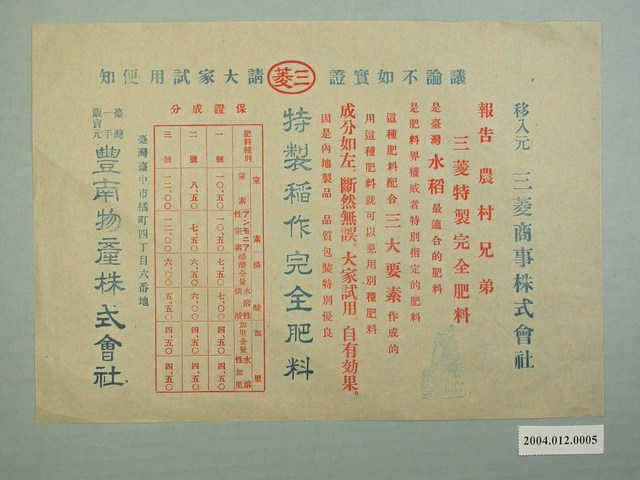 議論不如實證 三菱 請大家試用便知
移入元 三菱商事株式會社
報告 農村兄弟
三菱特製完全肥料
是臺灣水稻最適合的肥料
是肥料界權威者特別指定的肥料
這種肥料配合三大要素作成的
用這種肥料就可以免用別種肥料
成分如左。斷然無誤。大家試用。自有効果。
因是內地製品 品質包裝特別優良
特製稲作完全肥料
保證成分
肥料種別 一號 二號 三號
窒素
窒素全量 一〇、五〇 八、五〇 一二、〇〇
アンモニア性窒素 一〇、五〇 七、五〇 一二、〇〇
燐酸
燐酸全量 七、五〇 六、五〇 六、〇〇
水溶性燐酸 七、〇〇 六、〇〇 五、五〇
加里
加里全量 四、五〇 四、五〇 四、五〇
水溶性加里 四、五〇 四、五〇 四、五〇
臺灣臺中市橘町四丁目六番地
臺灣一手販賣元 豐南物產株式會社
2004.012.0005